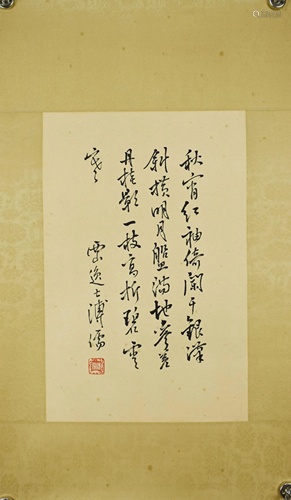 秋宵红袖倚阑干银汉
斜横明月盘满地参差
丹桂影一枝高折碧云
寒
溥儒